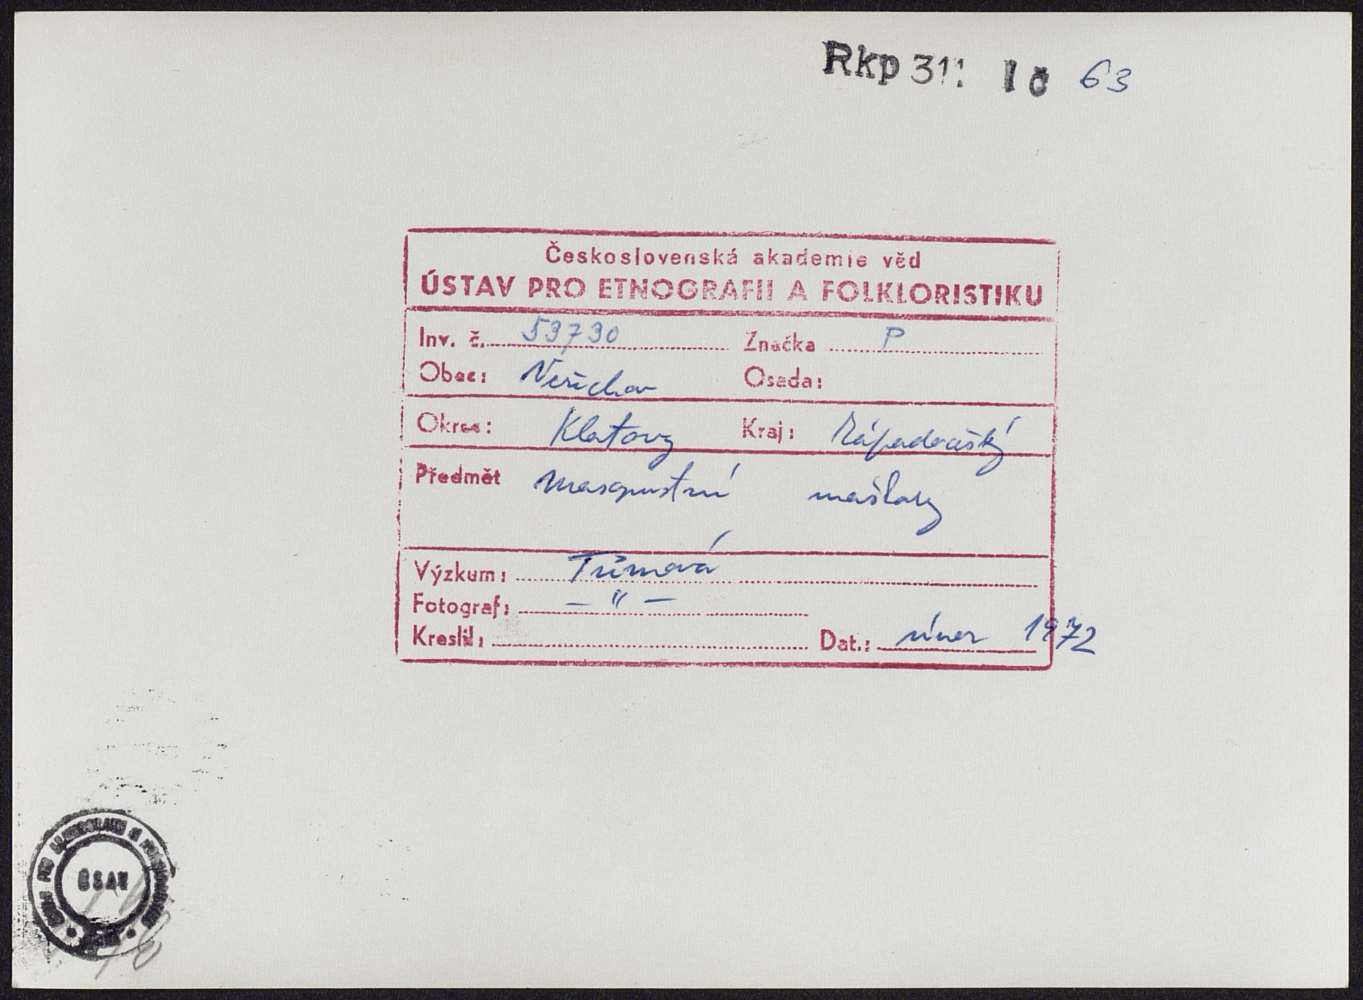 Rkp 311 Ič 63
Československá akademie věd
ÚSTAV PRO ETNOGRAFII A FOLKLORISTIKU
Inv. č. 53730 Značka P
Obec: Osada:
Okres: Klatovy Kraj: Západočeský
Předmět masopustní maškary
Výzkum: Tůmová
Fotograf: — " —
Kreslil: Dat.: únor 1972
ČSAV